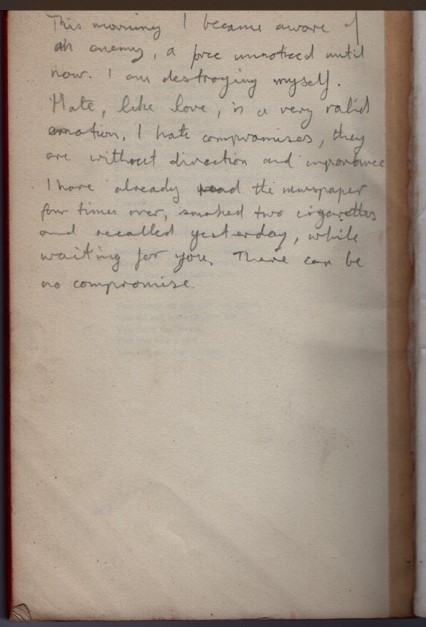 This morning I became aware of
an enemy, a force unnoticed until
now. I am destroying myself.
Hate, like love, is a very valid
emotion, I hate compromises, they
are without direction and
I have already read the newspaper
four times over, smoked two cigarettes
and recalled yesterday, while
waiting for you. There can be
no compromise.